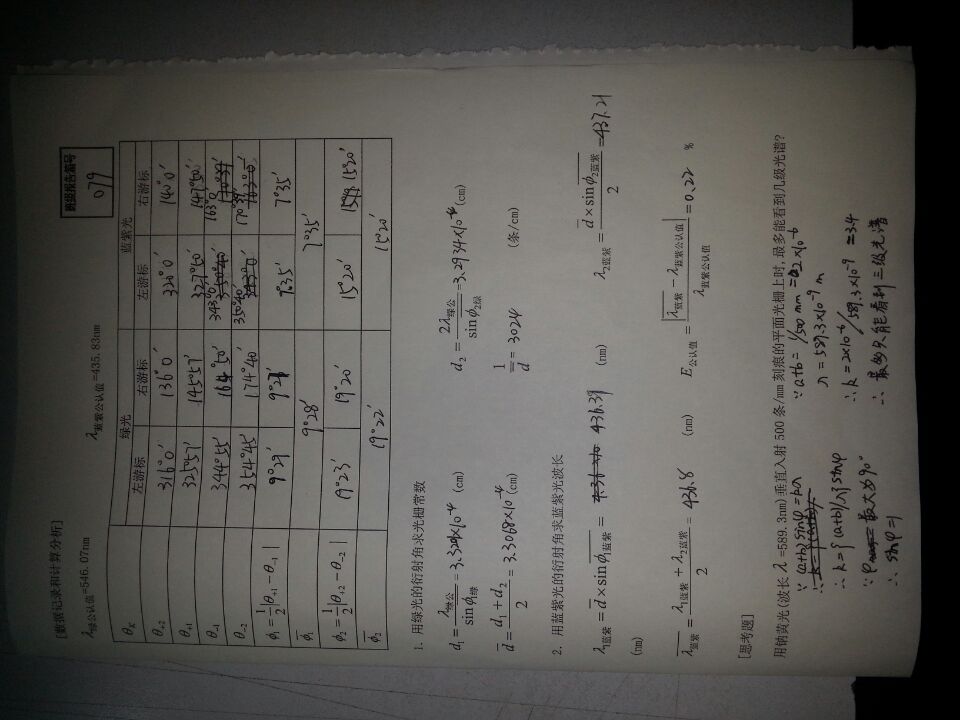 [数据记录和计算分析]
数据报告编号
079
λ绿公认值=546.07nm λ蓝紫公认值=435.83nm
θK 绿光 蓝紫光
左游标 右游标 左游标 右游标
θ+2 316°0′ 136°0′ 320°0′ 140°0′
θ+1 325°57′ 145°57′ 327°50′ 147°50′
θ-1 344°55′ 164°50′ 343°0′ 163°0′
θ-2 354°45′ 174°40′ 350°40′ 170°39′
φ1=1/2|θ+1-θ-1| 9°29′ 9°27′ 7°35′ 7°35′
φ1 9°28′ 7°35′
φ2=1/2|θ+2-θ-2| 19°23′ 19°20′ 15°20′ 15°20′
φ2 19°22′ 15°20′
1. 用绿光的衍射角求光栅常数
d1=λ绿公/sinφ1绿=3.320×10^-4 (cm) d2=2λ绿公/sinφ2绿=3.2934×10^-4 (cm)
d=(d1+d2)/2=3.3068×10^-4 (cm) 1/d=3024 (条/cm)
2. 用蓝紫光的衍射角求蓝紫光波长
λ1蓝紫=d×sinφ1蓝紫=436.39 (nm) λ2蓝紫=d×sinφ2蓝紫/2=437.21
(nm)
λ蓝紫=(λ1蓝紫+λ2蓝紫)/2=436.8 (nm) E公认值=|λ蓝紫-λ蓝紫公认值|/λ蓝紫公认值=0.22 %
[思考题]
用钠黄光(波长λ=589.3nm)垂直入射500条/mm刻痕的平面光栅上时,最多能看到几级光谱?
∵ (a+b)sinφ=kλ ∵ a+b=1/500 mm=2×10^-6
λ=589.3×10^-9 m
∴ k={(a+b)/λ}sinφ
∵ φ最大为90° ∴ k=2×10^-6/589.3×10^-9=3.4
∴ sinφ=1 ∴ 最多只能看到三级光谱